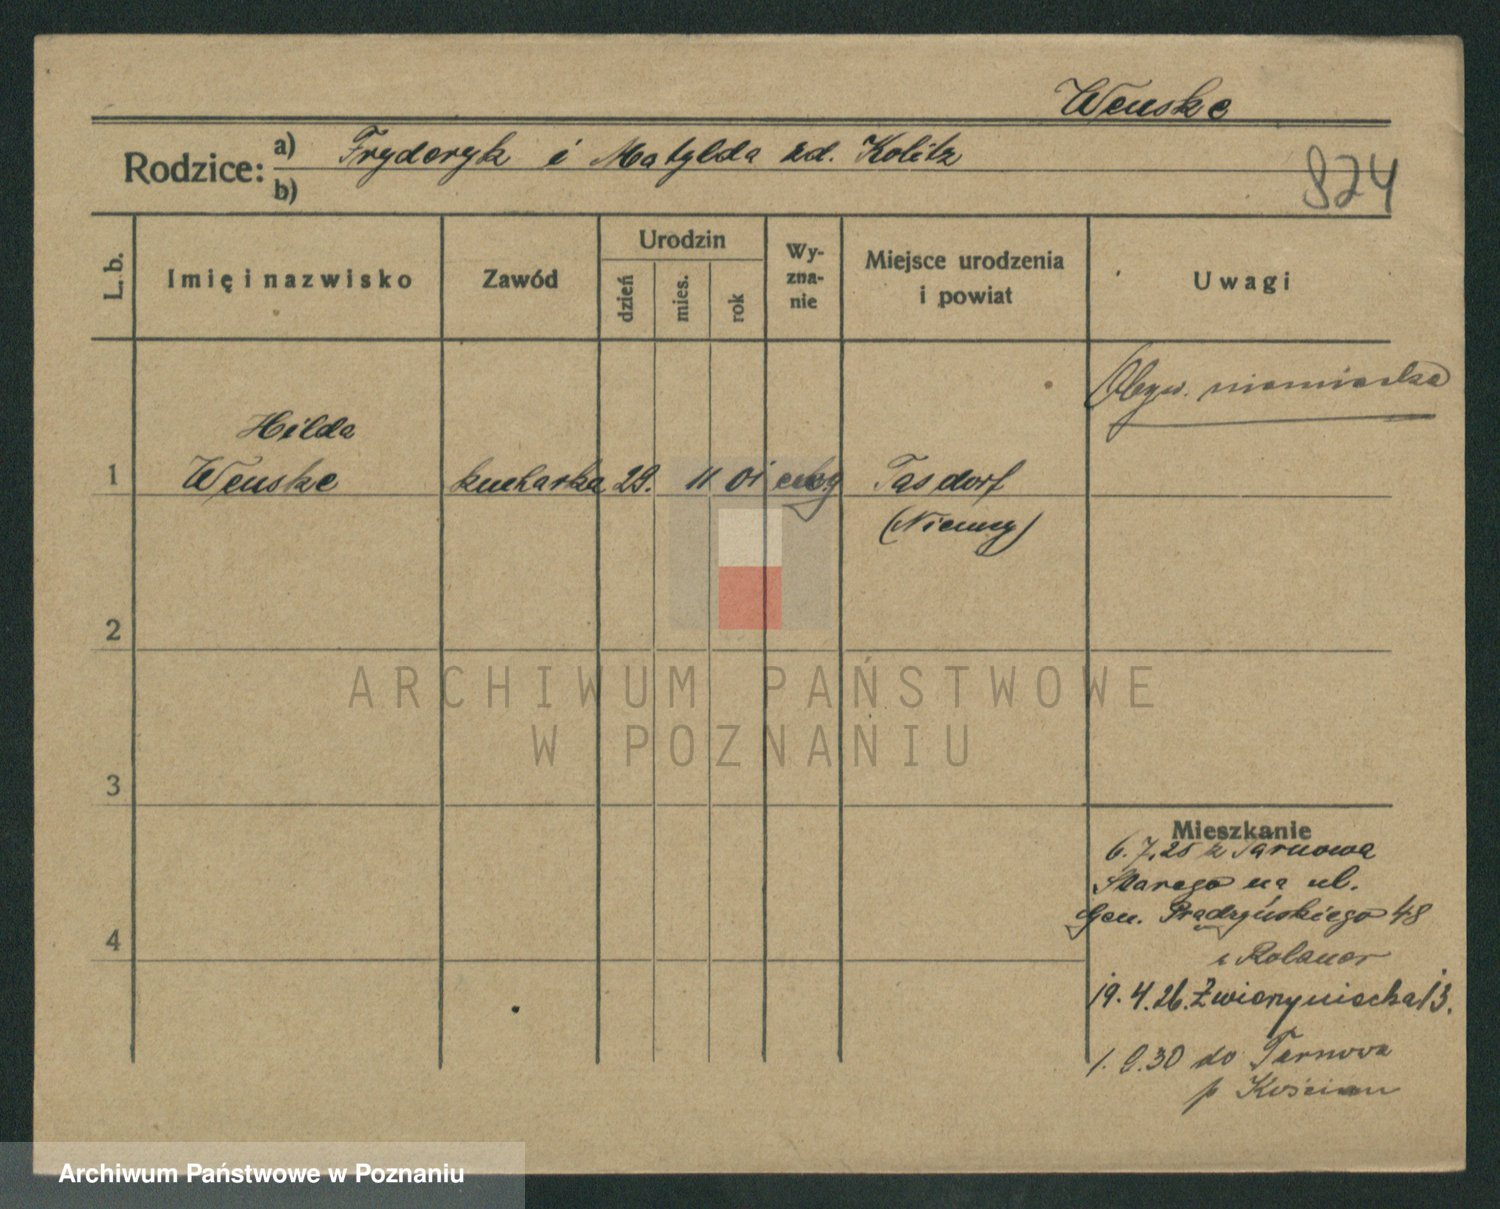 Wenske
Rodzice: a) Fryderyk i Matylda zd. Kolitz
b)
824
L. b.
Imię i nazwisko
Zawód
Urodzin
dzień
mies.
rok
Wy-
zna-
nie
Miejsce urodzenia
i powiat
Uwagi
Obyw. niemiecka
Hilda
1 Wenske kucharka 29. 11 01 ewg Tasdorf
(Niemcy)
2
3
4
ARCHIWUM PAŃSTWOWE
W POZNANIU
Mieszkanie
6.7.25 z Tarnowa
Starego na ul.
Gen. Prądzyńskiego 48
19.4.26. Zwierzyniecka 13.
1.9.30 do Tarnova
p Kościan
Archiwum Państwowe w Poznaniu